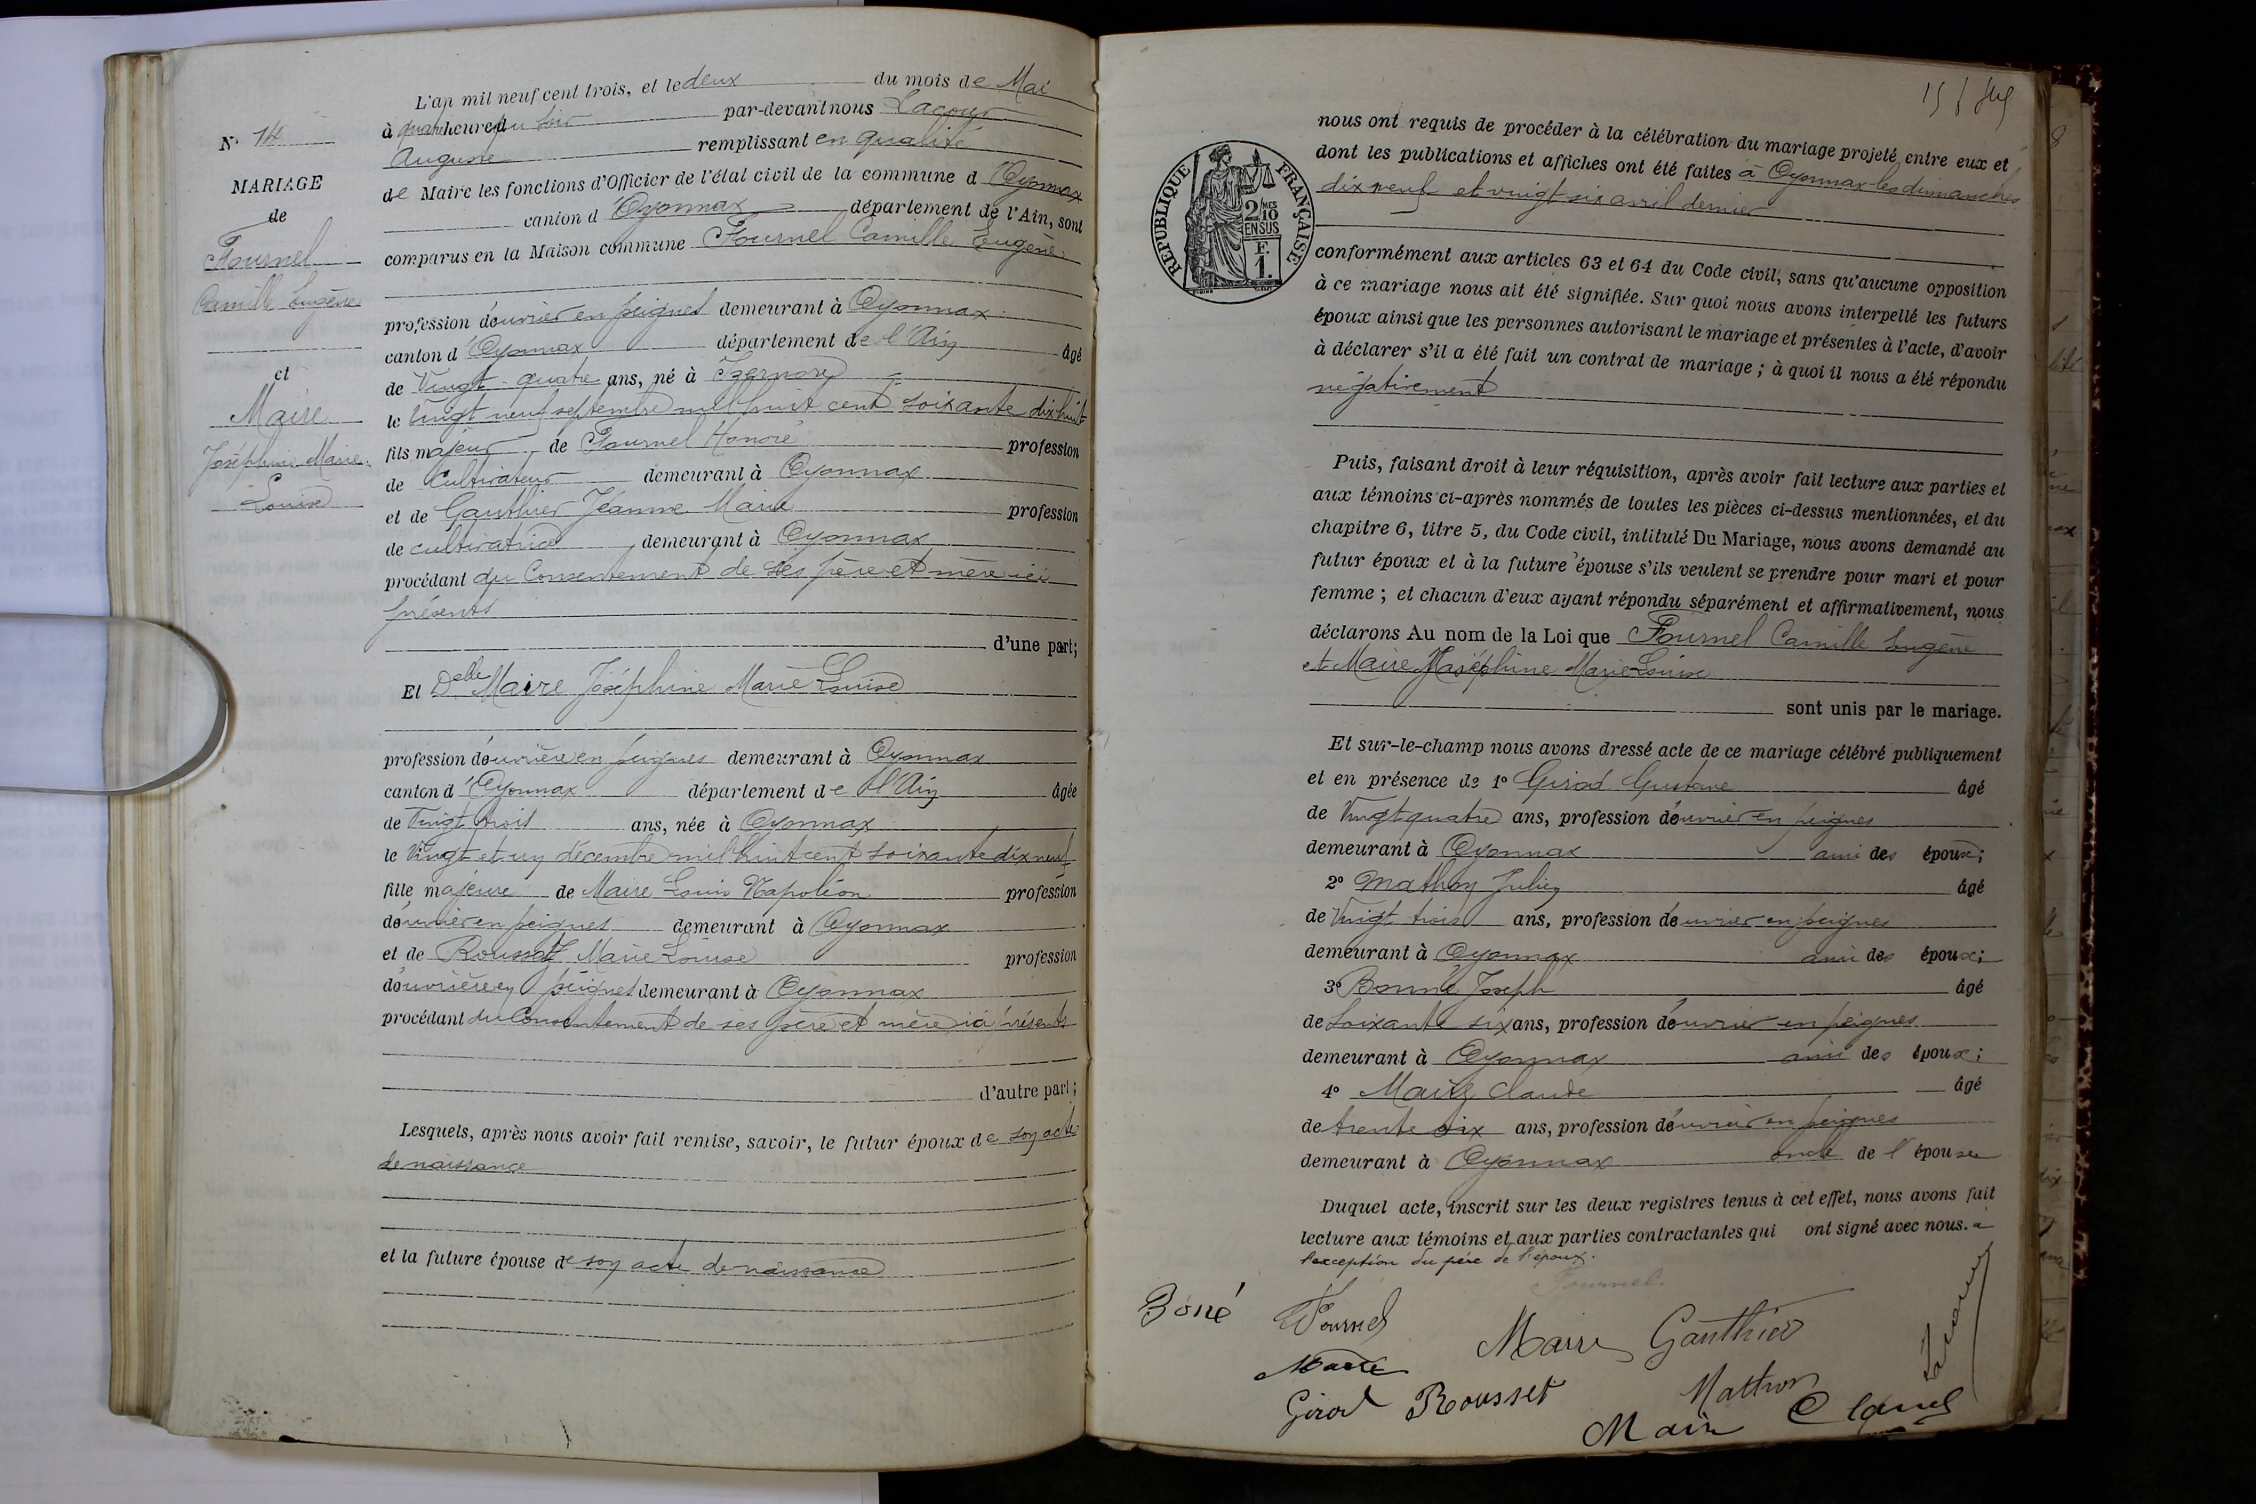 N° 14
MARIAGE
de
Fournel
Camille Eugène
et
Maire
Joséphine Marie
Louise
L'an mil neuf cent trois, et le deux du mois de Mai
à quatre heures du soir par-devant nous Lacour
Auguste remplissant en qualité
de Maire les fonctions d'Officier de l'état civil de la commune d'Oyonnax
canton d'Oyonnax département de l'Ain, sont
comparus en la Maison commune Fournel Camille Eugène
profession d'ouvrier en peignes demeurant à Oyonnax
canton d'Oyonnax département de l'Ain âgé
de Vingt-quatre ans, né à Izernore
le vingt neuf septembre mil huit cent soixante dix huit
fils majeur de Fournel Honoré profession
de cultivateur demeurant à Oyonnax
et de Gauthier Jéanne Marie profession
de cultivatrice demeurant à Oyonnax
procédant du consentement de ses père et mère ici
présents
d'une part;
Et Delle Maire Joséphine Marie Louise
profession d'ouvrière en peignes demeurant à Oyonnax
canton d'Oyonnax département de l'Ain âgée
de Vingt trois ans, née à Oyonnax
le Vingt et un décembre mil huit cent soixante dix neuf
fille majeure de Maire Louis Napoléon profession
d'ouvrier en peignes demeurant à Oyonnax
et de Rousset Marie Louise profession
d'ouvrière en peignes demeurant à Oyonnax
procédant du Consentement de ses père et mère ici présents
d'autre part;
Lesquels, après nous avoir fait remise, savoir, le futur époux de son acte
de naissance
et la future épouse de son acte de naissance
RÉPUBLIQUE FRANÇAISE
2 MES
10
EN SUS
F.
1.
nous ont requis de procéder à la célébration du mariage projeté entre eux et
dont les publications et affiches ont été faites à Oyonnax les dimanches
dix neuf et vingt six avril dernier
conformément aux articles 63 et 64 du Code civil, sans qu'aucune opposition
à ce mariage nous ait été signifiée. Sur quoi nous avons interpellé les futurs
époux ainsi que les personnes autorisant le mariage et présentes à l'acte, d'avoir
à déclarer s'il a été fait un contrat de mariage; à quoi il nous a été répondu
négativement
Puis, faisant droit à leur réquisition, après avoir fait lecture aux parties et
aux témoins ci-après nommés de toutes les pièces ci-dessus mentionnées, et du
chapitre 6, titre 5, du Code civil, intitulé Du Mariage, nous avons demandé au
futur époux et à la future épouse s'ils veulent se prendre pour mari et pour
femme; et chacun d'eux ayant répondu séparément et affirmativement, nous
déclarons Au nom de la Loi que Fournel Camille Eugène
et Maire Joséphine Marie Louise
sont unis par le mariage.
Et sur-le-champ nous avons dressé acte de ce mariage célébré publiquement
et en présence de 1° Girod Gustave âgé
de Vingt quatre ans, profession d'ouvrier en peignes
demeurant à Oyonnax ami des époux;
2° Mathon Julien âgé
de Vingt trois ans, profession d'ouvrier en peignes
demeurant à Oyonnax ami des époux;
3° Bonné Joseph âgé
de Soixante six ans, profession d'ouvrier en peignes
demeurant à Oyonnax ami des époux;
4° Maire Claude âgé
de trente six ans, profession d'ouvrier en peignes
demeurant à Oyonnax oncle de l'épouse
Duquel acte, inscrit sur les deux registres tenus à cet effet, nous avons fait
lecture aux témoins et aux parties contractantes qui ont signé avec nous. à
l'exception du père de l'époux.
Fournel
Boné
Fournel
Maire Gauthier
Maire
Girod Rousset
Mathon
Lacour
Maire Claude